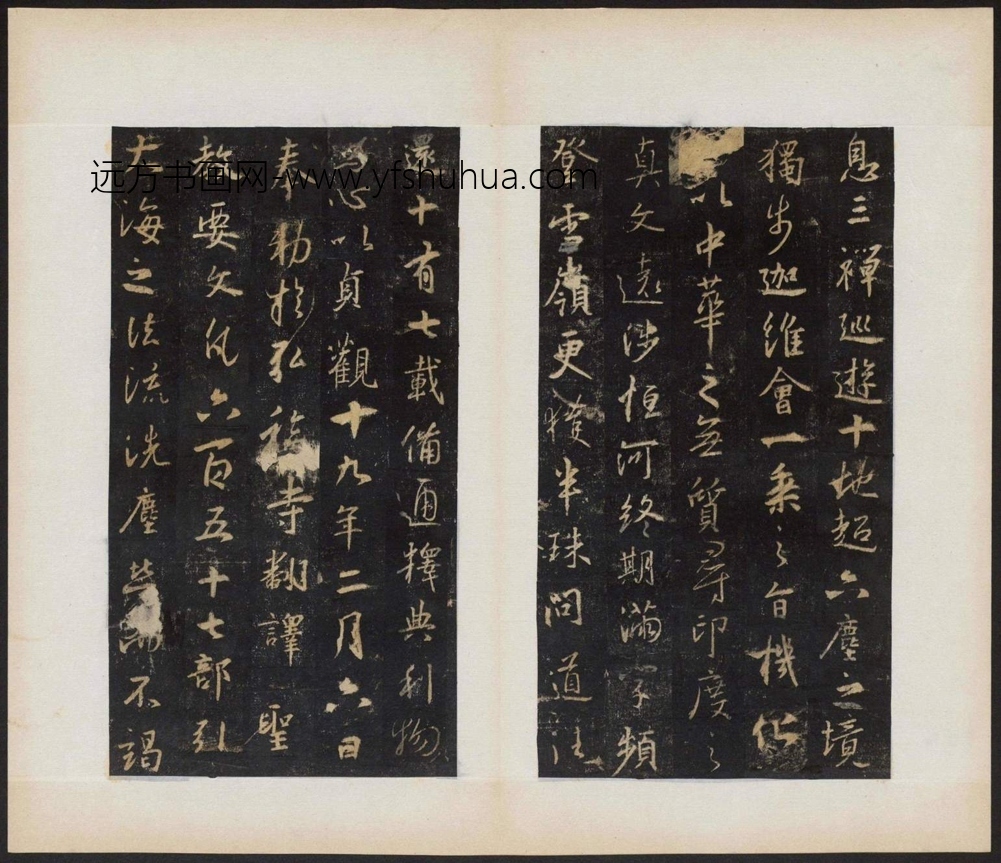 息三禪巡遊十地超六塵之境
獨步迦維會一乘之旨機化
以中華之無質尋印度之
真文遠涉恒河終期滿字頻
登雪嶺更獲半珠問道往
還十有七載備通釋典利物
為心以貞觀十九年二月六日
奉勅於弘福寺翻譯聖
教要文凡六百五十七部引
大海之法流洗塵勞而不竭
远方书画网-www.yfshuhua.com